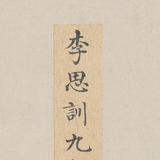 李思訓九